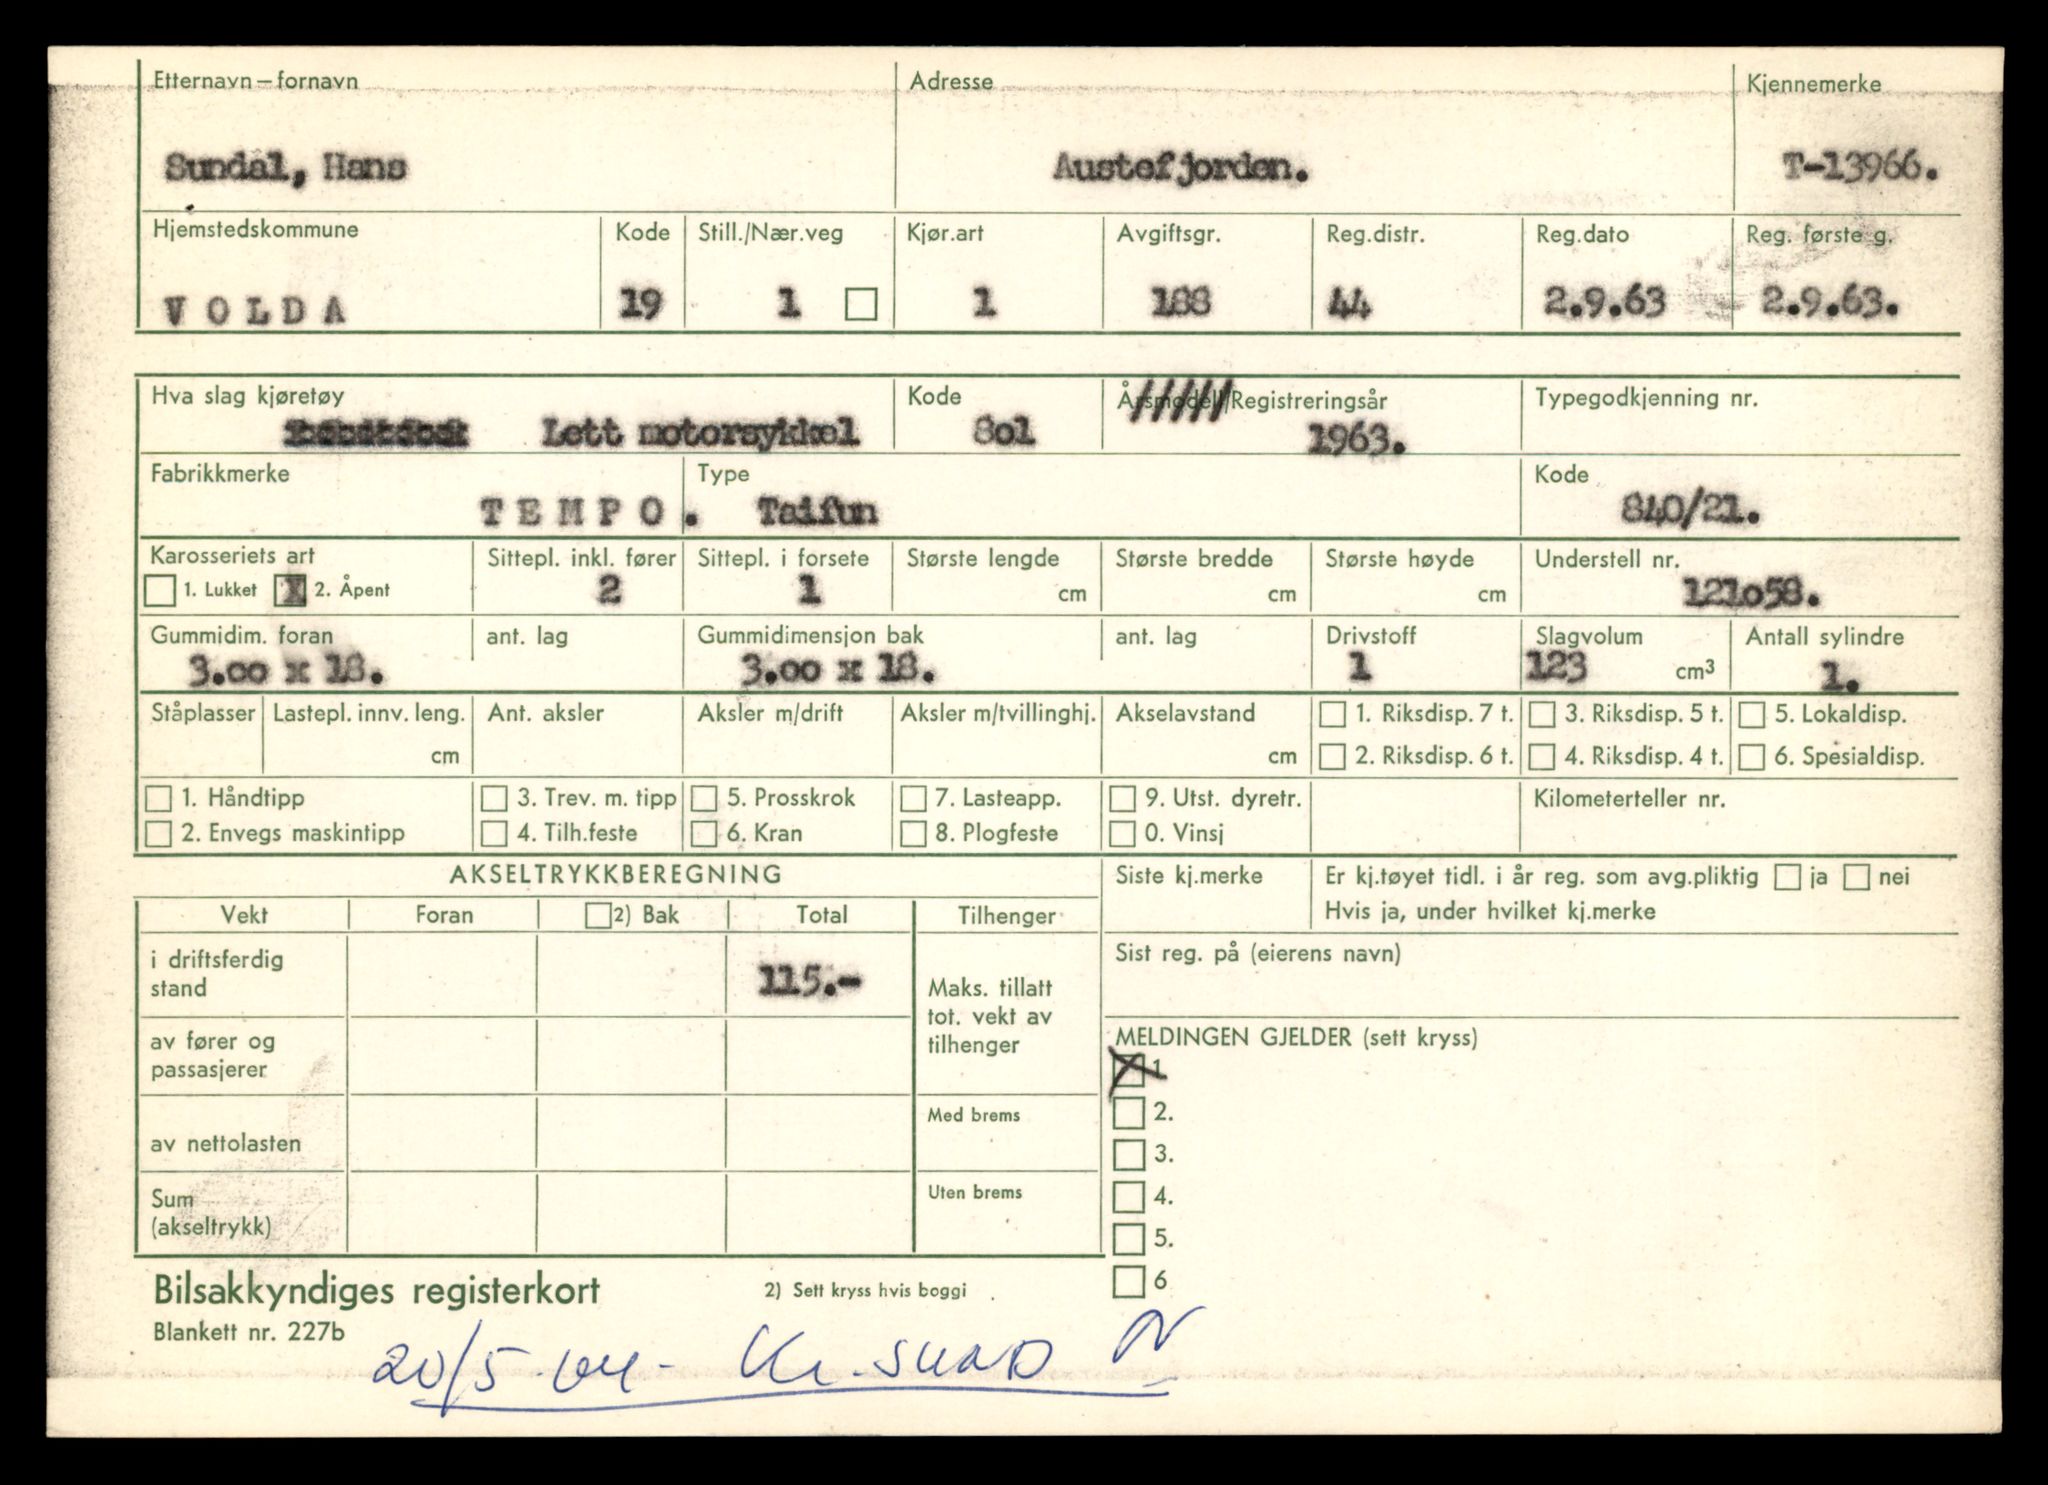 Etternavn – fornavn Adresse Kjennemerke
Sundal, Hans Austefjorden. T-13966.
Hjemstedskommune Kode Still./Nær.veg Kjør.art Avgiftsgr. Reg.distr. Reg.dato Reg. første g.
VOLDA 19 1 1 188 44 2.9.63 2.9.63.
Hva slag kjøretøy Kode Årsmodell/Registreringsår Typegodkjenning nr.
Lett motorsykkel 8o1 1963.
Fabrikkmerke Type Kode
TEMPO. Taifun 840/21.
Karosseriets art Sittepl. inkl. fører Sittepl. i forsete Største lengde Største bredde Største høyde Understell nr.
1. Lukket X 2. Åpent 2 1 cm cm cm 121o58.
Gummidim. foran ant. lag Gummidimensjon bak ant. lag Drivstoff Slagvolum Antall sylindre
3.oo x 18. 3.oo x 18. 1 123 cm³ 1.
Ståplasser Lastepl. innv. leng. Ant. aksler Aksler m/drift Aksler m/tvillinghj. Akselavstand 1. Riksdisp. 7 t. 3. Riksdisp. 5 t. 5. Lokaldisp.
cm cm 2. Riksdisp. 6 t. 4. Riksdisp. 4 t. 6. Spesialdisp.
1. Håndtipp 3. Trev. m. tipp 5. Prosskrok 7. Lasteapp. 9. Utst. dyretr. Kilometerteller nr.
2. Envegs maskintipp 4. Tilh.feste 6. Kran 8. Plogfeste 0. Vinsj
AKSELTRYKKBEREGNING Siste kj.merke Er kj.tøyet tidl. i år reg. som avg.pliktig ja nei
Hvis ja, under hvilket kj.merke
Vekt Foran 2) Bak Total Tilhenger
Sist reg. på (eierens navn)
i driftsferdig
stand 115.- Maks. tillatt
tot. vekt av
tilhenger
av fører og
passasjerer
MELDINGEN GJELDER (sett kryss)
X 1
2.
3.
4.
5.
6
Med brems
av nettolasten
Uten brems
Sum
(akseltrykk)
Bilsakkyndiges registerkort 2) Sett kryss hvis boggi
Blankett nr. 227b
20/5-64-